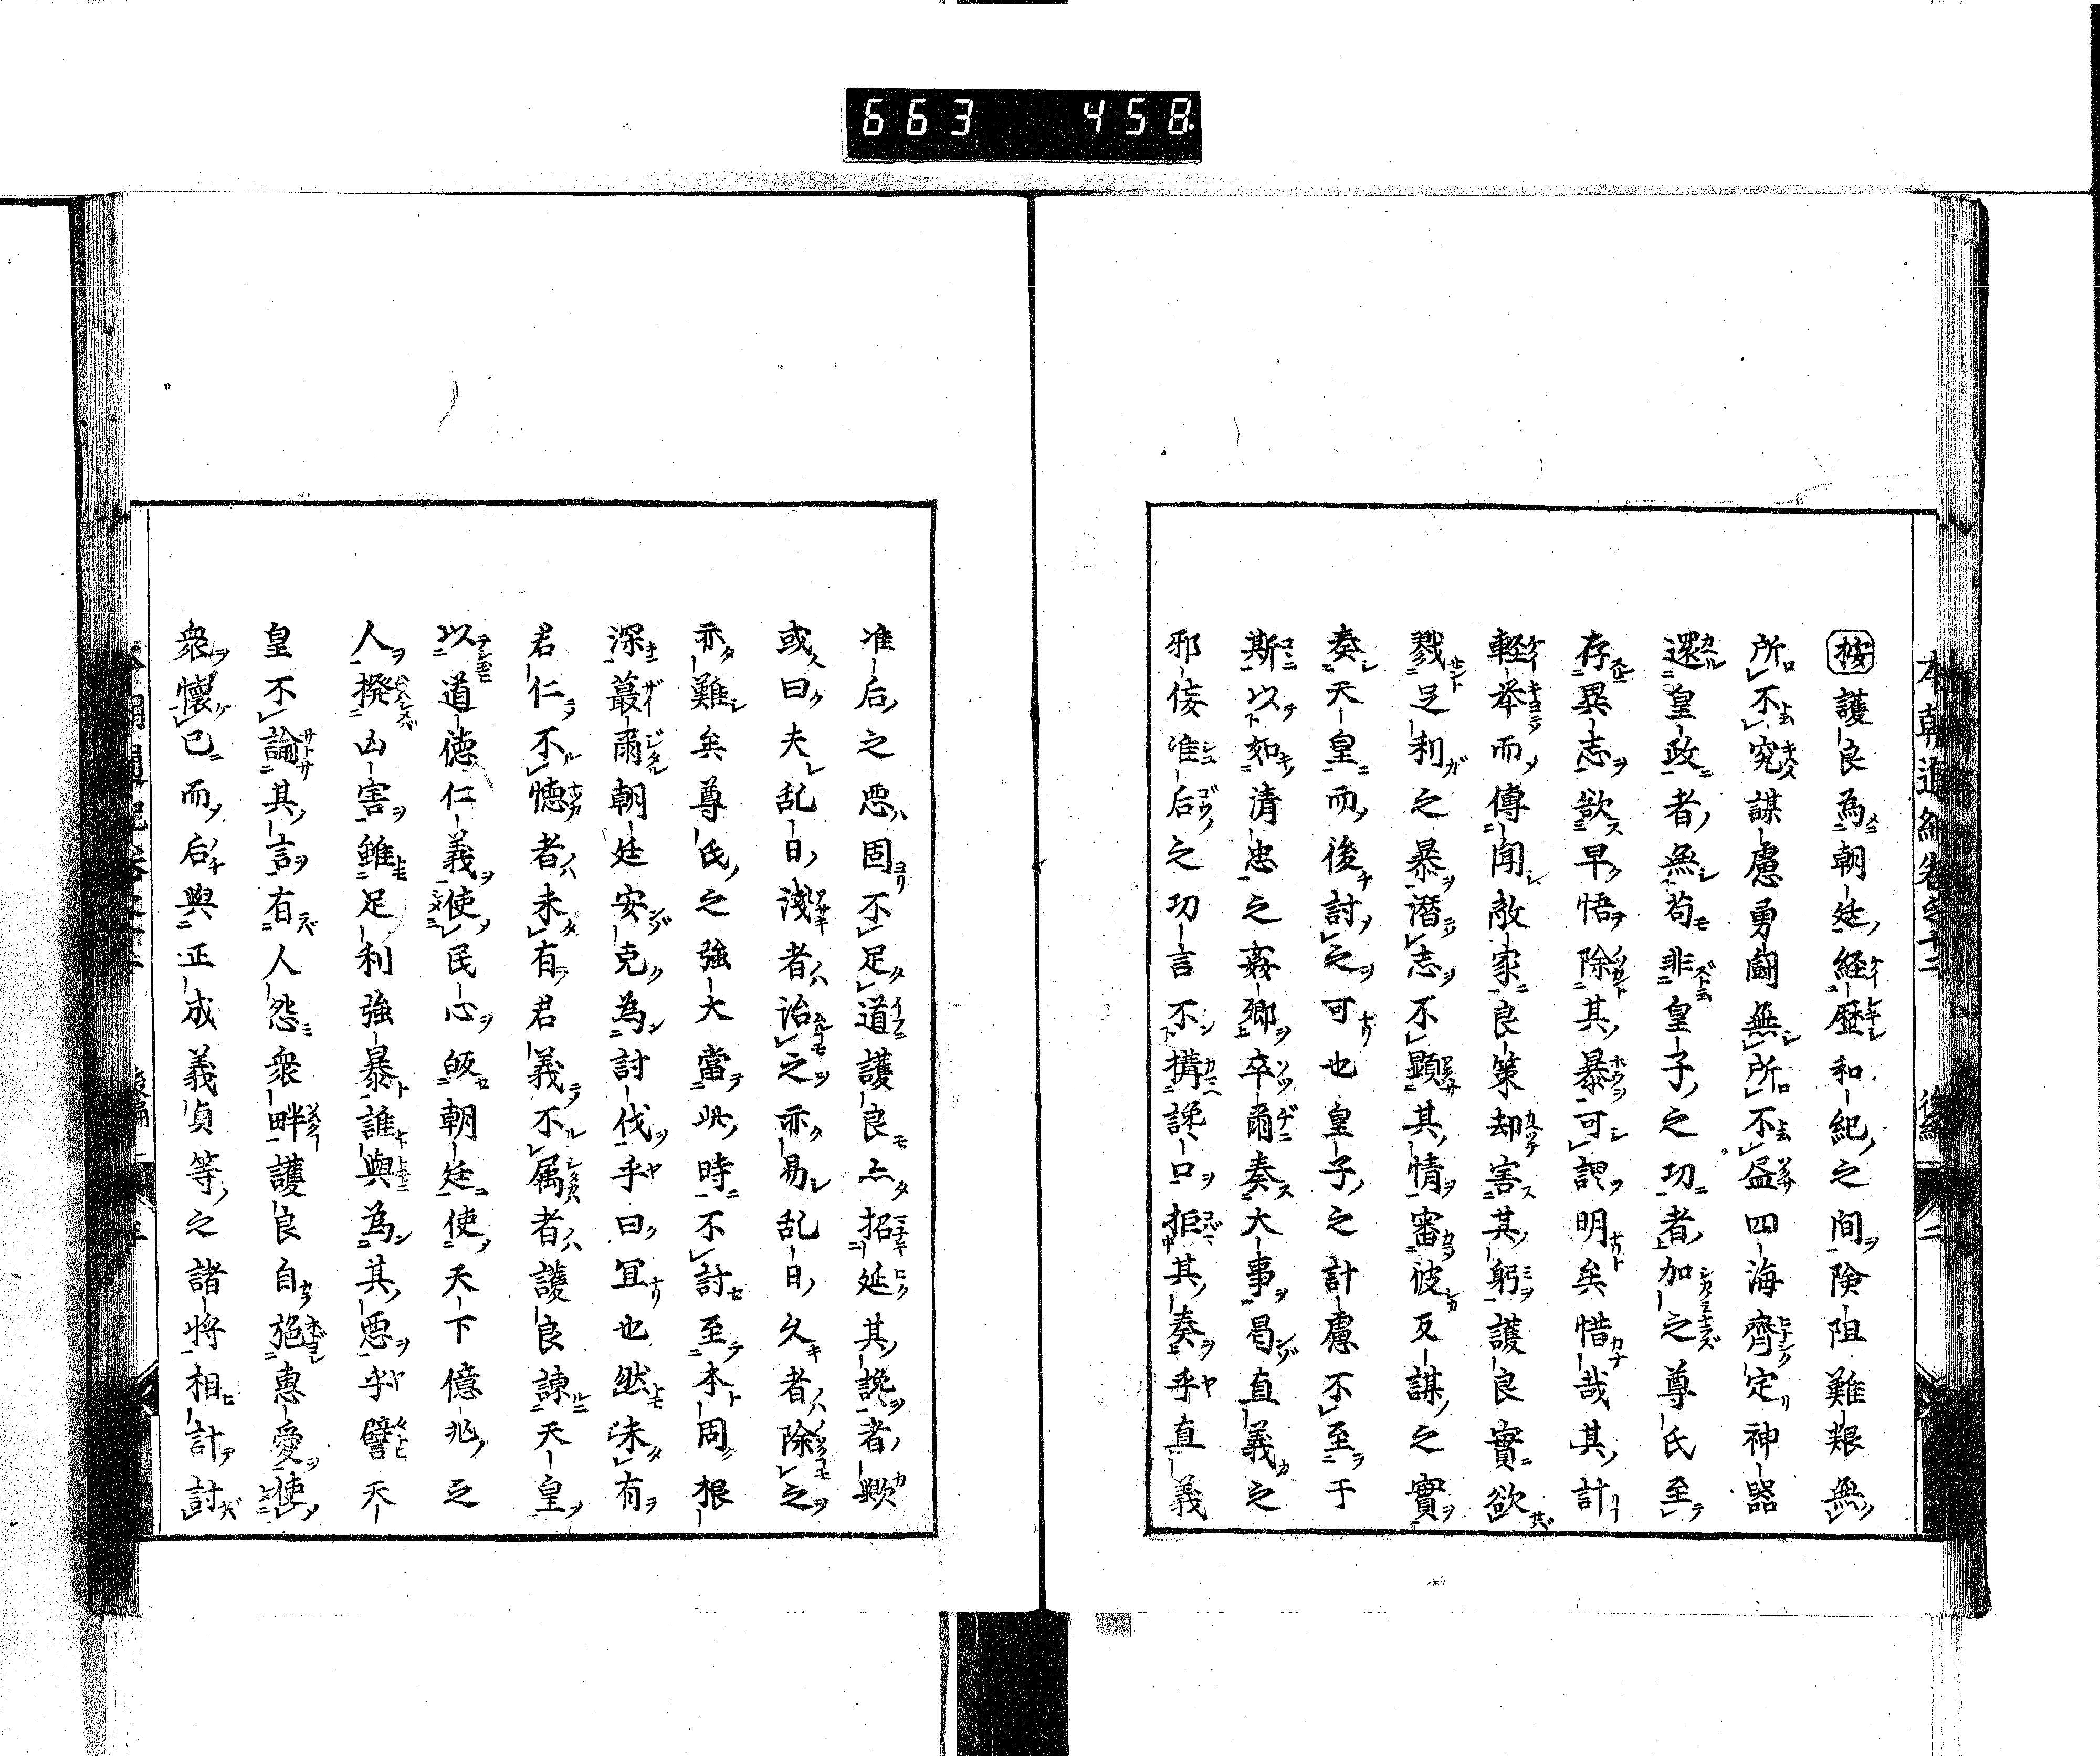 663 458
本朝通紀卷之十二 後編 二
按護良為朝廷経歴和紀之間険阻難艱無
所不究謀慮勇闘無所不盡四海齊定神器
還皇政者無苟非皇子之功者加之尊氏至
存異志欲早悟除其暴可謂明矣惜哉其計
軽挙而傳聞敵家良策却害其躬護良實欲
戮足利之暴潜志不顕其情審彼反謀之實
奏天皇而後討之可也皇子之計慮不至于
斯以如清忠之姦郷卒爾奏大事曷直義之
邪佞准后之功言不搆讒口拒其奏乎直義
准后之悪固不足道護良亦招延其讒者歟
或曰夫乱日淺者治之亦易乱日久者除之
亦難矣尊氏之強大當此時不討至本固根
深蕞爾朝廷安克為討伐乎曰冝也然未有
君仁不懐者未有君義不属者護良諌天皇
以道徳仁義使民心皈朝廷使天下億兆之
人撥凶害雖足利強暴誰與為其悪乎譬天
皇不論其言有人怨衆畔護良自施惠愛使
衆懐已而后與正成義貞等之諸将相計討